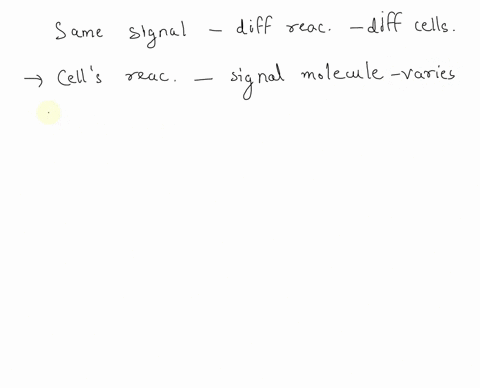 Same signal - diff reac. - diff cells.
→ Cell's reac. - signal molecule - varies